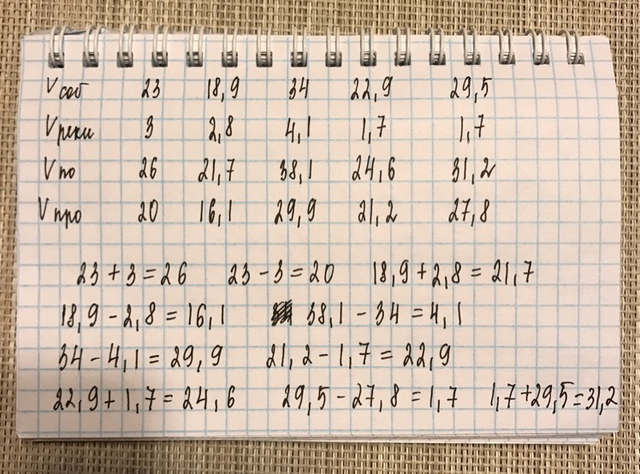 Vсоб 23 18,9 34 22,9 29,5
Vреки 3 2,8 4,1 1,7 1,7
Vпо 26 21,7 38,1 24,6 31,2
Vпро 20 16,1 29,9 21,2 27,8
23+3=26 23-3=20 18,9+2,8=21,7
18,9-2,8=16,1 38,1-34=4,1
34-4,1=29,9 21,2-1,7=22,9
22,9+1,7=24,6 29,5-27,8=1,7 1,7+29,5=31,2